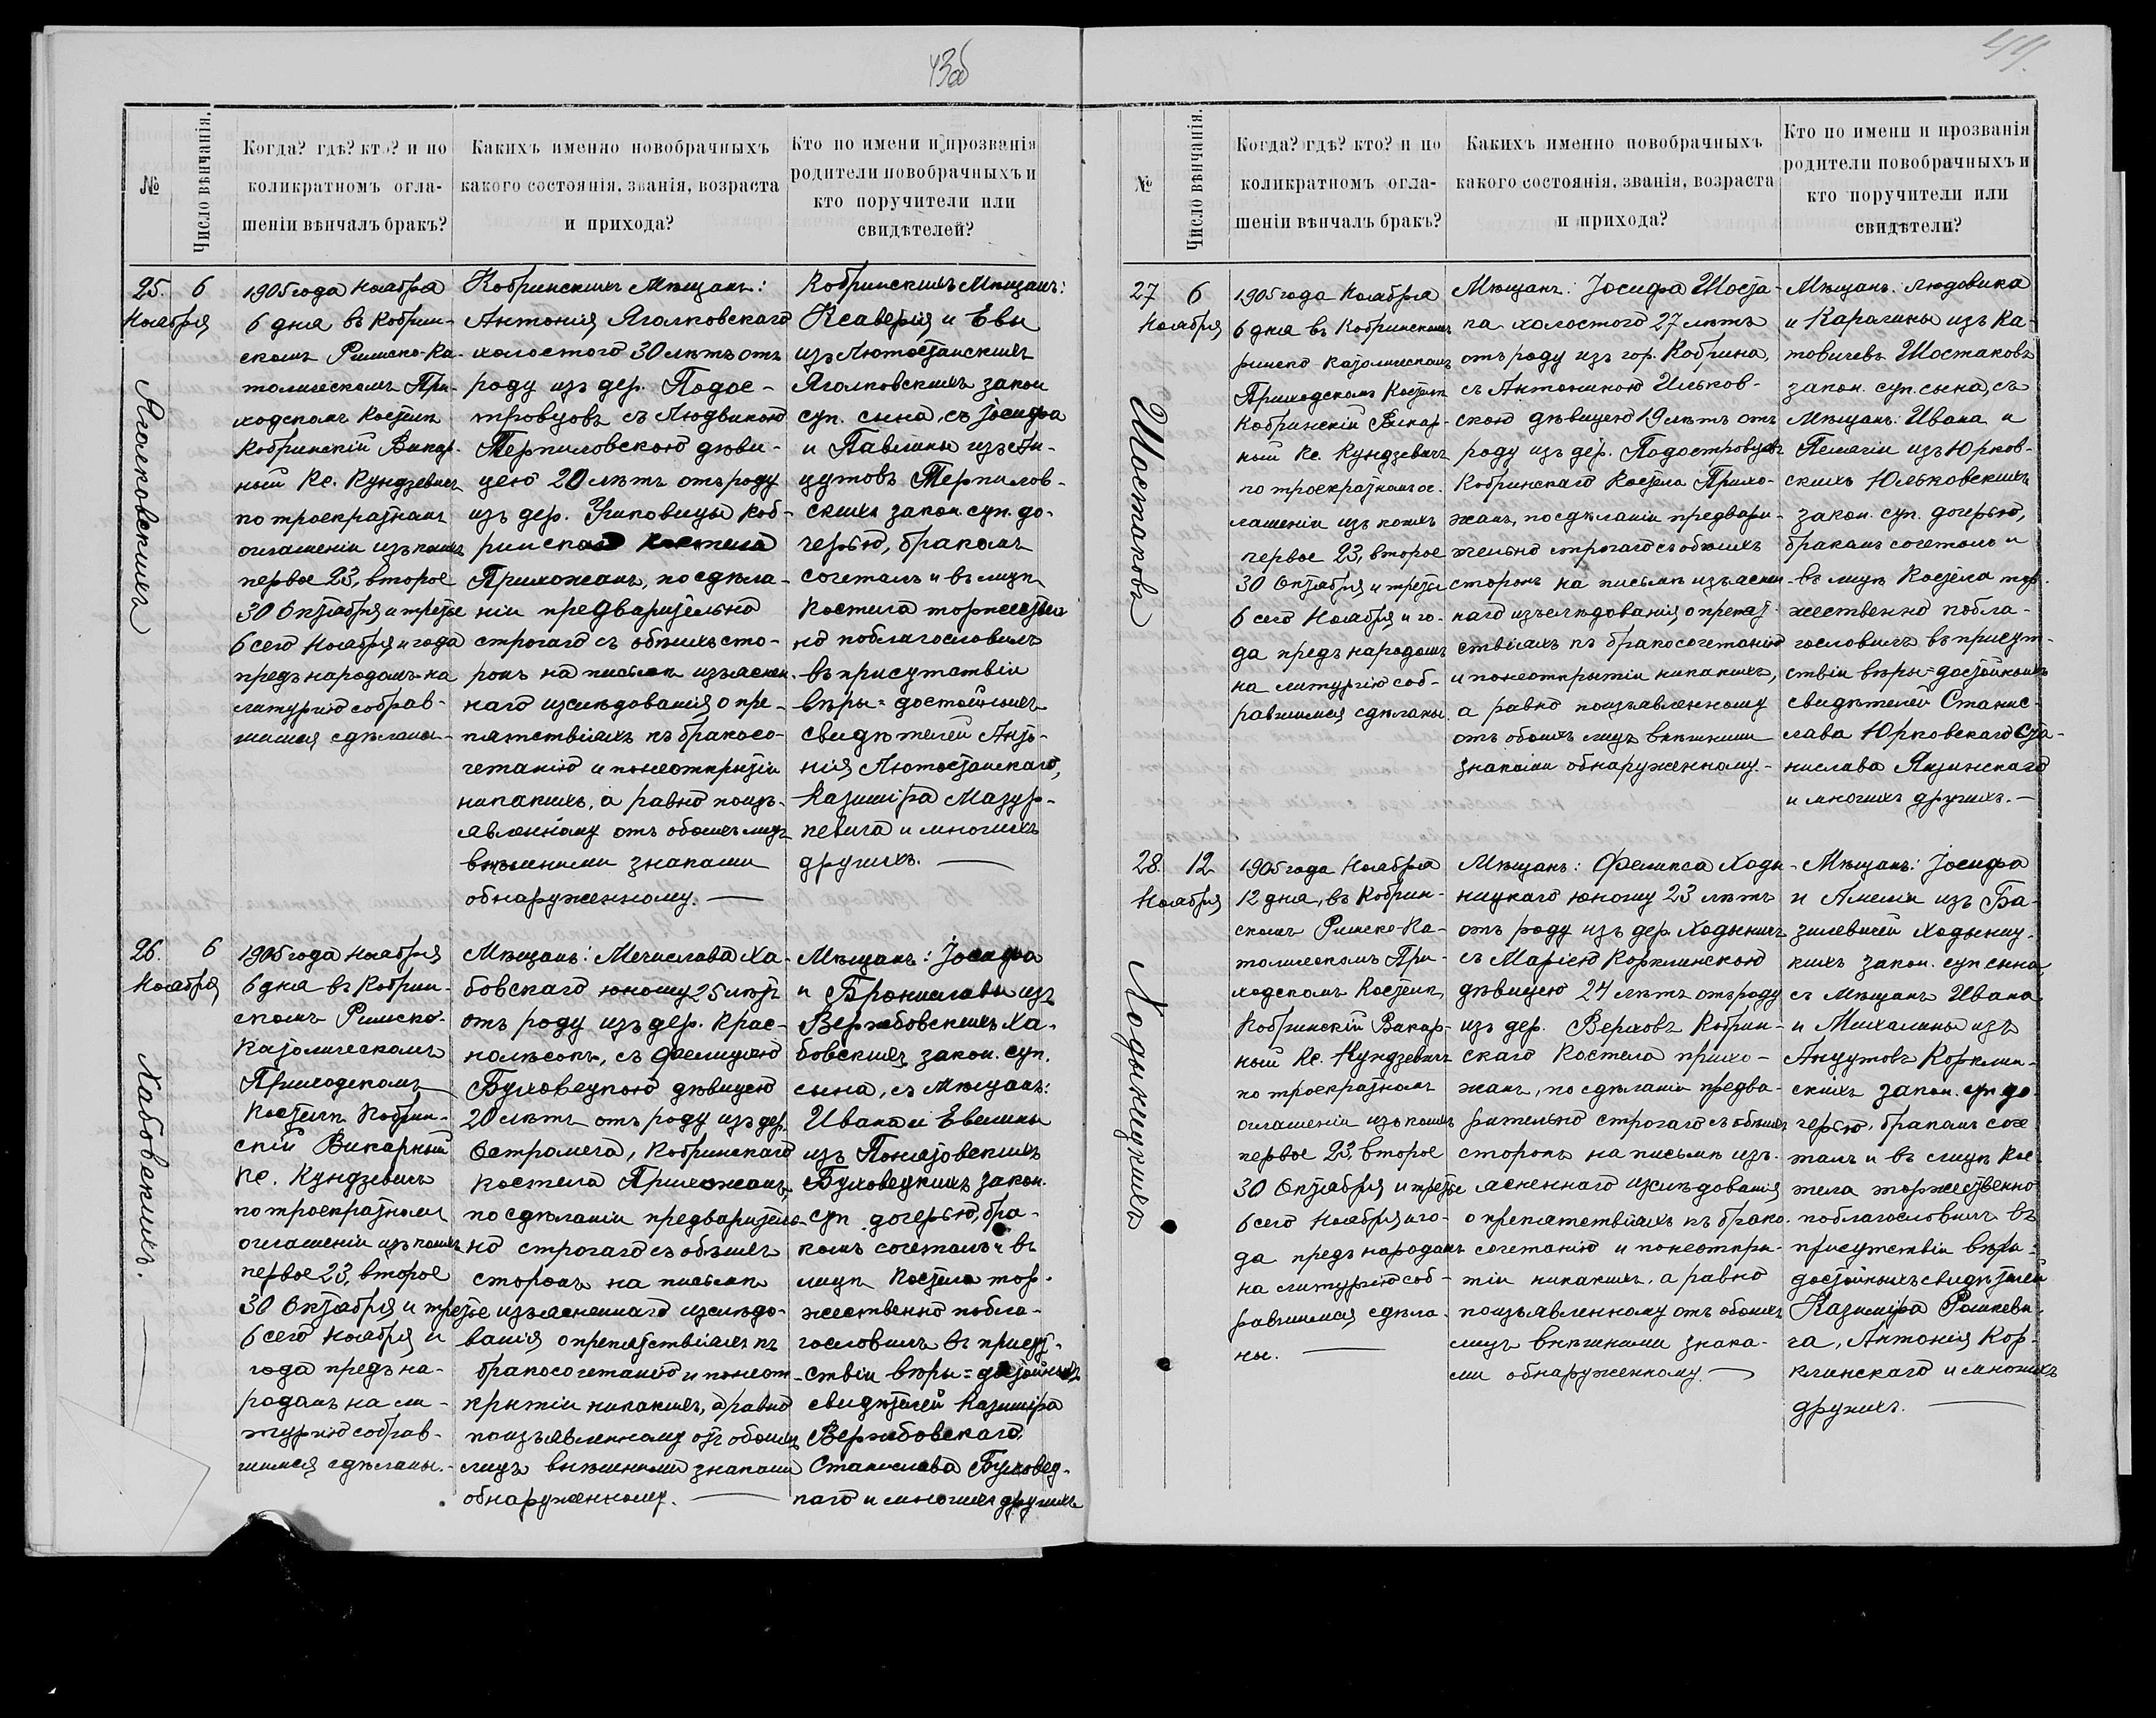 43об
№
Число вѣнчанія.
Когда? гдѣ? кто? и по
коликратномъ огла-
шеніи вѣнчалъ бракъ?
Какихъ именно новобрачныхъ
какого состоянія, званія, возраста
и прихода?
Кто по имени и прозванія
родители новобрачныхъ и
кто поручители или
свидѣтелей?
25. 6
Ноября
Яголковскихъ
1905 года Ноября
6 дня въ Кобрин-
скомъ Римско-Ка-
толическомъ При-
ходскомъ Костелѣ
Кобринскій Викар-
ный Кс. Кундзевичъ
по троекратномъ
оглашеніи изъ коихъ
первое 23, второе
30 Октября и третье
6 сего Ноября и года
предъ народомъ на
литургію собрав-
шимся сдѣланы-
Кобринскихъ Мѣщанъ:
Антонія Яголковскаго
холостого 30 лѣтъ отъ
роду изъ дер. Подос-
тровцовъ съ Людвикою
Терпиловскою дѣви-
цею 20 лѣтъ отъ роду
изъ дер. Гиповицы Коб-
ринскаго Костела
Прихожанъ, по сдѣла-
ніи предварительно
строгаго съ обѣихъ сто-
ронъ на письмѣ изъяснен-
наго изслѣдованія о пре-
пятствіяхъ къ бракосо-
четанію и понеоткрытіи
никакихъ, а равно поизъ-
явленному отъ обоихъ лицъ
внѣшними знаками
обнаруженному. —
Кобринскихъ Мѣщанъ:
Ксаверія и Евы
изъ Лютостанскихъ
Яголковскихъ закон
суп. сына, съ Іосифа
и Павлины изъ Ан-
цутовъ Терпилов-
скихъ закон. суп. до-
черью, бракомъ
сочеталъ и въ лицѣ
Костела торжествен
но поблагословилъ
въ присутствіи
вѣры=достойныхъ
свидѣтелей Анто-
нія Лютостанскаго,
Казиміра Мазур-
кевича и многихъ
другихъ. —
26. 6
Ноября
Хабовскихъ.
1905 года Ноября
6 дня въ Кобрин-
скомъ Римско-
Католическомъ
Приходскомъ
Костелѣ Кобрин-
скій Викарный
Кс. Кундзевичъ
по троекратномъ
оглашеніи изъ коихъ
первое 23, второе
30 Октября и третье
6 сего Ноября и
года предъ на-
родомъ на ли-
тургію собрав-
шимся сдѣланы.-
Мѣщанъ: Мечислава Ха-
бовскаго юному 25 лѣтъ
отъ роду изъ дер. Крас-
нолѣсокъ, съ Фелицію
Буховецкою дѣвицею
20 лѣтъ отъ роду изъ дер.
Остромеча, Кобринскаго
Костела Прихожанъ,
по сдѣланіи предваритель-
но строгаго съ обѣихъ
сторонъ на письмѣ
изъясненнаго изслѣдо-
ванія о препятствіяхъ къ
бракосочетанію и понеот-
крытіи никакихъ, а равно
поизъявленному отъ обоихъ
лицъ внѣшними знаками
обнаруженному. —
Мѣщанъ: Іосифа
и Брониславы изъ
Вержбовскихъ Ха-
бовскихъ закон. суп.
сына, съ Мѣщанъ:
Ивана и Евелины
изъ Понятовскихъ
Буховецкихъ закон.
суп. дочерью, бра-
комъ сочеталъ и въ
лицѣ Костела тор-
жественно побла-
гословилъ въ присут-
ствіи вѣры=достойныхъ
свидѣтелей Казиміра
Вержбовскаго,
Станислава Буховец-
каго и многихъ другихъ
44.
№
Число вѣнчанія.
Когда? гдѣ? кто? и по
коликратномъ огла-
шеніи вѣнчалъ бракъ?
Какихъ именно новобрачныхъ
какого состоянія, званія, возраста
и прихода?
Кто по имени и прозванія
родители новобрачныхъ и
кто поручители или
свидѣтели?
27 6
Ноября
Шостаковъ
1905 года Ноября
6 дня въ Кобринскомъ
римско Католическомъ
Приходскомъ Костелѣ
Кобринскій Викар-
ный Кс. Кундзевичъ
по троекратномъ ог-
лашеніи изъ коихъ
первое 23, второе
30 Октября и третье
6 сего Ноября и го-
да предъ народомъ
на литургію соб-
равшимся сдѣланы.
Мѣщанъ: Іосифа Шоста-
ка холостого 27 лѣтъ
отъ роду изъ гор. Кобрина,
съ Антониною Ильков-
скою дѣвицею 19 лѣтъ отъ
роду изъ дер. Подостровцовъ
Кобринскаго Костела Прихо-
жанъ, по сдѣланіи предвари-
тельно строгаго съ обѣихъ
сторонъ на письмѣ изъяснен-
наго изъслѣдованія о препят-
ствіяхъ къ бракосочетанію
и понеоткрытіи никакихъ,
а равно поизъявленному
отъ обоихъ лицъ внѣшними
знаками обнаруженному.-
Мѣщанъ: Людовика
и Каралины изъ Ка-
товичевъ Шостаковъ
закон. суп. сына, съ
Мѣщанъ: Ивана и
Пелагіи изъ Юрков-
скихъ Юльковскихъ
закон. суп. дочерью,
бракомъ сочеталъ и
въ лицѣ Костела тор-
жественно побла-
гословилъ въ присут-
ствіи вѣры=достойныхъ
свидѣтелей Станис-
лава Юрковскаго Ста-
нислава Яцинскаго
и многихъ другихъ.—
28. 12
Ноября
Ходыницкихъ
1905 года Ноября
12 дня, въ Кобрин-
скомъ Римско-Ка-
толическомъ При-
ходскомъ Костелѣ,
Кобринскій Викар-
ный Кс. Кундзевичъ
по троекратномъ
оглашеніи изъ коихъ
первое 23, второе
30 Октября и третье
6 сего Ноября и го-
да предъ народомъ
на литургію соб-
равшимся сдѣла-
ны. —
Мѣщанъ: Феликса Ходы-
ницкаго юному 23 лѣтъ
отъ роду изъ дер. Ходыничъ
съ Марією Корклинскою
дѣвицею 24 лѣтъ отъ роду
изъ дер. Верховъ Кобрин-
скаго Костела прихо-
жанъ, по сдѣланіи предва-
рительно строгаго съ обѣихъ
сторонъ на письмѣ изъ-
ясненнаго изслѣдованія
о препятствіяхъ къ брако-
сочетанію и понеоткры-
тіи никакихъ, а равно
поизъявленному отъ обоихъ
лицъ внѣшними знака-
ми обнаруженному. —
Мѣщанъ: Іосифа
и Амеліи изъ Ба-
зилевичей Ходыниц-
кихъ закон. суп сына
съ Мѣщанъ Ивана
и Михалины изъ
Анцутовъ Корклин-
скихъ закон. суп до-
черью, бракомъ соче
талъ и въ лицѣ Кос-
тела торжественно
поблагословилъ въ
присутствіи вѣры=
достойныхъ свидѣтелей
Казиміра Рошкеви-
ча, Антонія Кор-
клинскаго и многихъ
другихъ. —